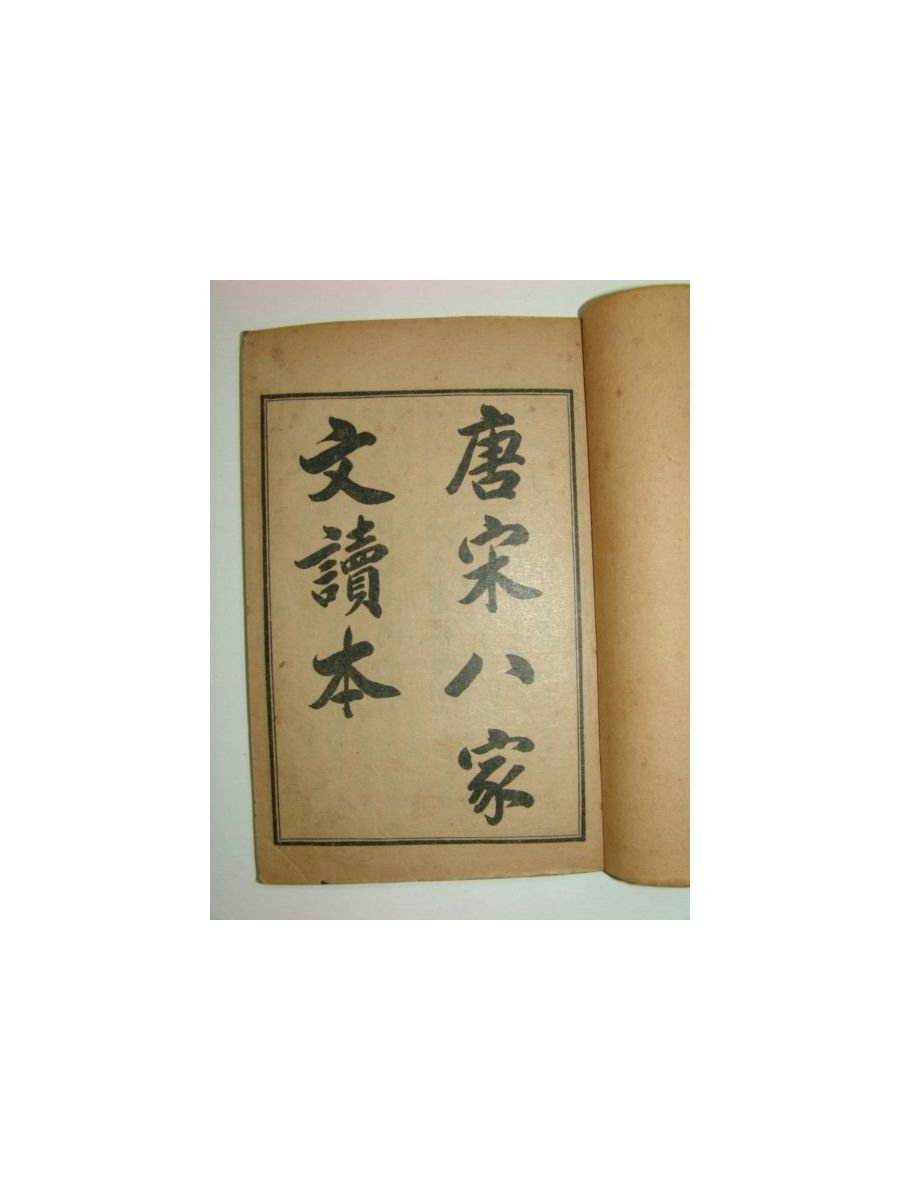 唐宋八家
文讀本